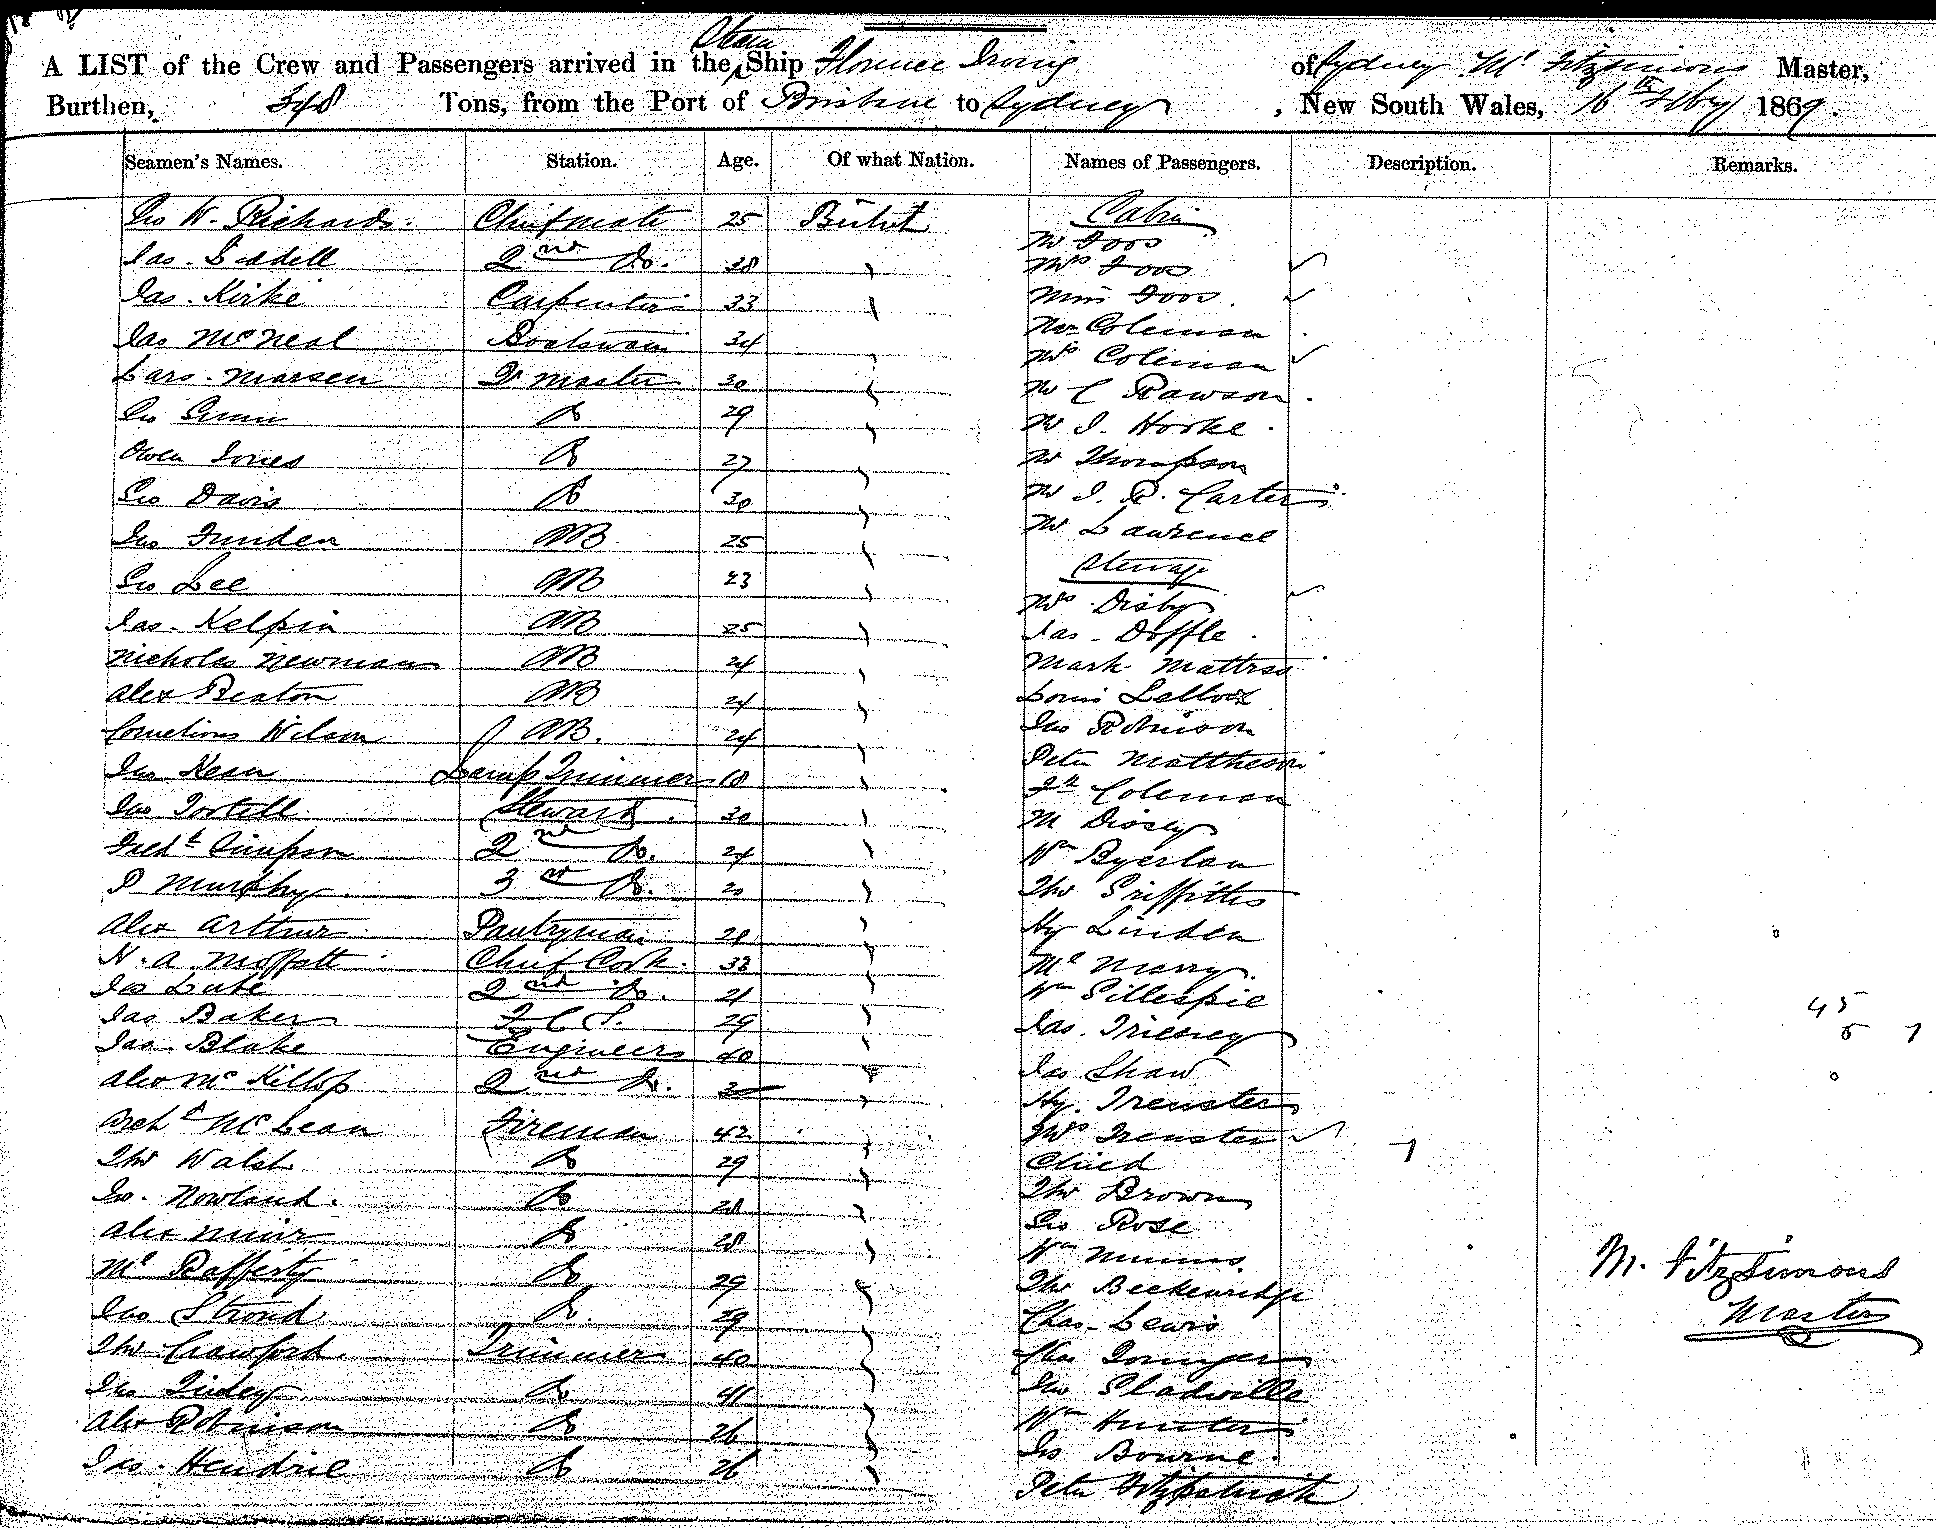 A LIST of the Crew and Passengers arrived in the Steam Ship Florence Irving of Sydney Ml Fitzsimons Master,
Burthen, 348 Tons, from the Port of Brisbane to Sydney, New South Wales, 16th Feby 1869.
Seamen's Names. Station. Age. Of what Nation. Names of Passengers. Description. Remarks.
W. Richards. Chief mate 25 British
Cabin
Jas. Liddell 2nd Do. 28
Mr Foos
Mrs Foos
Jas. Kirke Carpenter 33
Miss Foos
Jas McNeal Boatswain 34
Mr Coleman
Mrs Coleman
Lars. Marsen Qr master 30
Mr C Rawson
Do 29
Mr J. Horke
Owen Jones Do 27
Mr Thompson
Geo Davis Do 30
Mr J. R. Carter
Mr Lawrence
Jno Funden AB 25
Steerage
Geo Lee AB 23
Mrs Disby
Jas. Kelpin AB 25
Jas. Doffle
Nicholas Newman AB 24
Mark
Alex Beaton AB 24
Louis
Cornelious Wilson AB. 24
Jno Robinson
Peter Mattheson
Jno Kean Lamp Trimmer 18
Coleman
Jno Steward 30
M
Fredk Simpson 2nd Do. 24
Wm Byerlan
P Murphy 3rd Do. 20
Thos Griffiths
Alex Arthur Pantryman 28
Hy Linden
H. A. Moffatt Chief Cook. 33
Ml
Jas 2nd Do. 21
Wm Gillespie
Jas Baker F C S. 29
Jas.
Jas. Blake Engineer 40
Jas Shaw
Alex McKillop 2nd Do.
Hy. Trenster
Archd McLean Fireman 42
Mrs Trenster
Thos Walsh Do 29
Child
Nowland. Do 28
Thos Brown
Geo Rose
Alex Muir Do 28
Wm
Ml Rafferty Do 29
Thos Beckenridge
Jno Strond Do. 29
Chas. Lewis
Thos Crawford. Trimmer 40
Chas Younger
Jno Do 41
Jno Gladwille
Alex Robinson Do 26
Wm Hunter
Bourne
Jas. Hendrie Do 26
Peter Fitzpatrick
45
M. Fitzsimons
Master